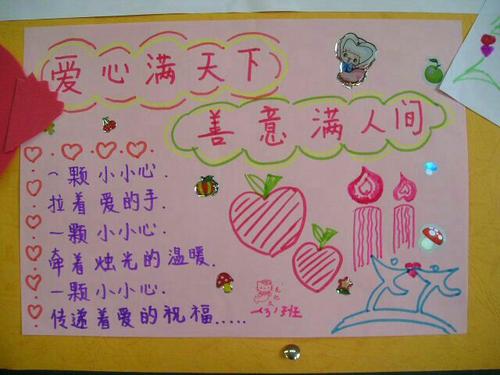 爱心满天下
善意满人间
一颗小小心.
拉着爱的手.
一颗小小心.
牵着烛光的温暖.
一颗小小心.
传递着爱的祝福.....